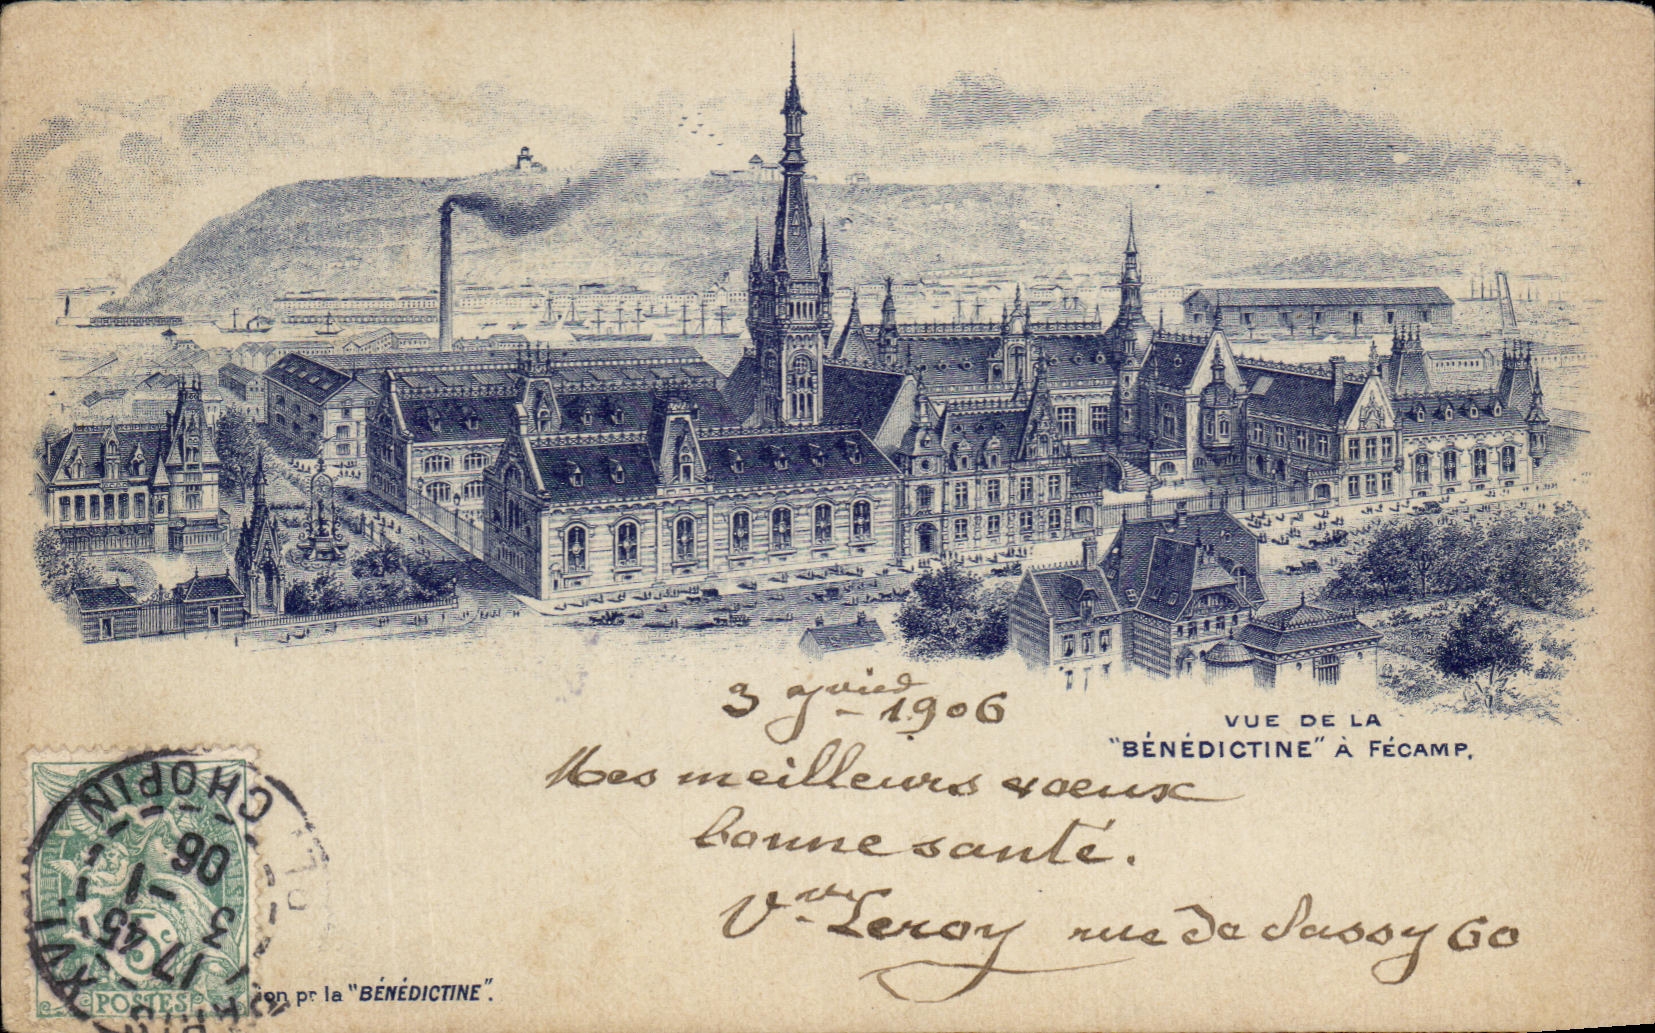 VUE DE LA
"BÉNÉDICTINE" À FÉCAMP.
3 1906
Mes meilleurs vœux
bonne santé.
Vve Leroy rue de Passy 60
CHOPIN
XVI
17 45
3 - 1
06
5
POSTES
ion pr la "BÉNÉDICTINE".